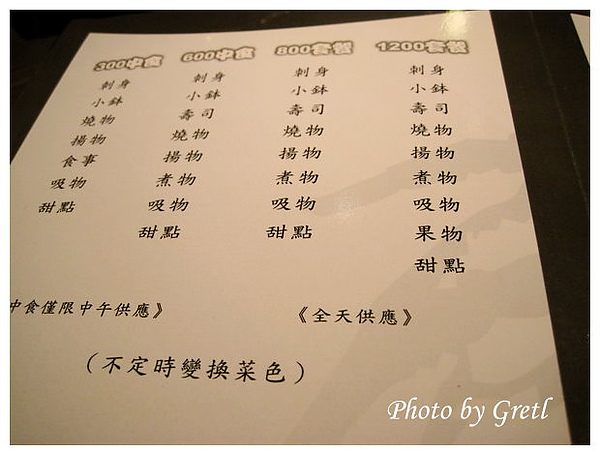 300中食
刺身
小鉢
燒物
揚物
食事
吸物
甜點
600中食
刺身
小鉢
壽司
燒物
揚物
煮物
吸物
甜點
800套餐
刺身
小鉢
壽司
燒物
揚物
煮物
吸物
甜點
1200套餐
刺身
小鉢
壽司
燒物
揚物
煮物
吸物
果物
甜點
中食僅限中午供應》
《全天供應》
(不定時變換菜色)
Photo by Gretl